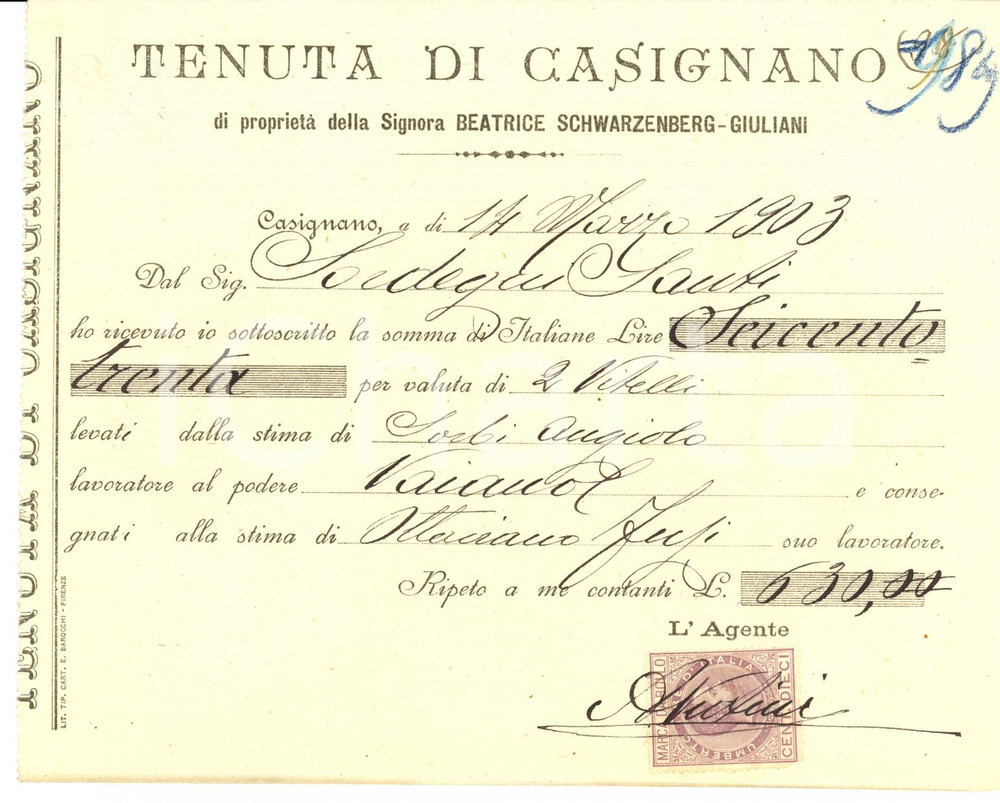 TENUTA DI CASIGNANO
di proprietà della Signora BEATRICE SCHWARZENBERG-GIULIANI
Casignano, a di 14 Marzo 1903
Dal Sig. Sardegni Santi
ho ricevuto io sottoscritto la somma di Italiane Lire Seicento
trenta per valuta di 2 Vitelli
levati dalla stima di Sorbi Angiolo
lavoratore al podere e conse-
gnati alla stima di suo lavoratore.
Ripeto a me contanti L. 630,00
L' Agente
MARCA DA BOLLO
D'ITALIA
UMBERTO
CENT. DIECI
TENUTA DI CASIGNANO
LIT. TIP. CART. E. BAROCCHI - FIRENZE